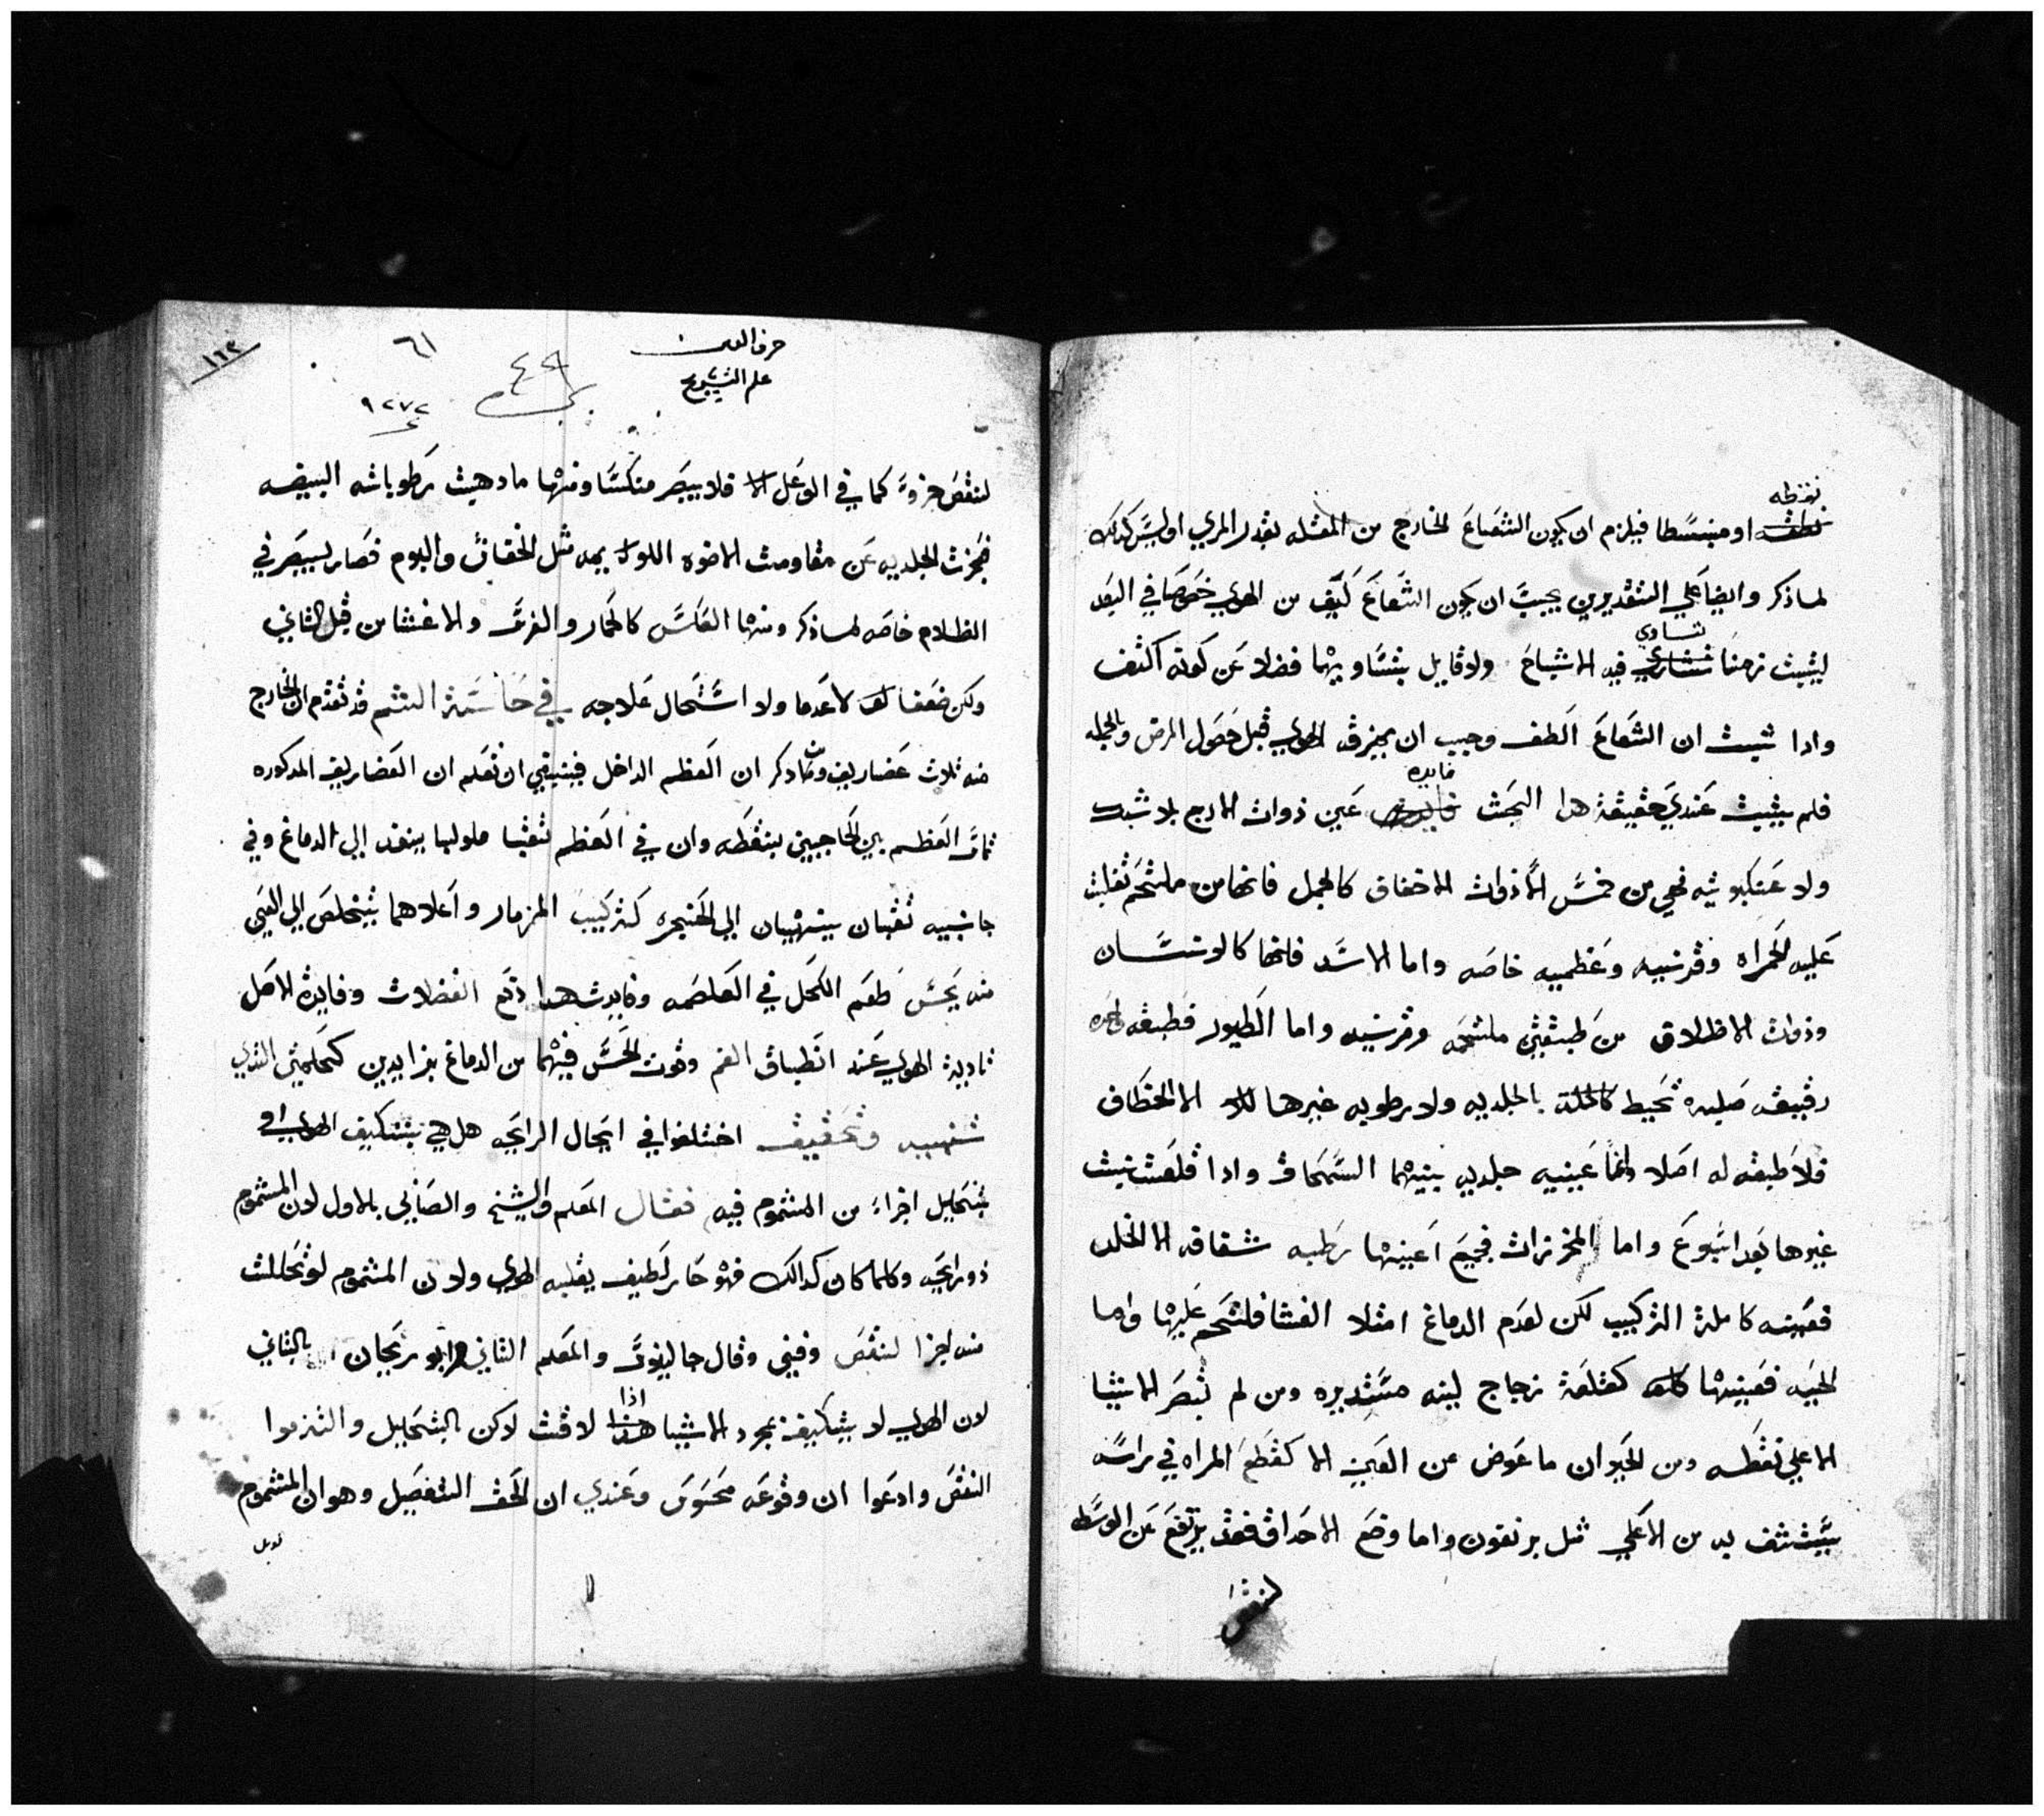 نقطه
نطفه او منبسطا فيلزم ان يكون الشعاع الخارج من المقله بقدر المري او ليس كذلك
لما ذكر وايضا علي التقديرين يجب ان يكون الشعاع كيف من الهوي خصوصا في البعد
تساوي
ليثبت زمنا تتساوي فيه الاشباح ولا قايل بتساويهما فضلا عن كونه اكثف
واذا ثبت ان الشعاع الطف وجب ان يمزقه الهوي قبل حصول المرض وبالجمله
فايده
فلم يثبت عندي حقيقة هدا البحث فايده عين ذوات الاربع بلا شبكيه
ولا عنكبوتيه فهي من خمس الا ذوات الاخفاف كالجمل فانها من ملتحم تغلبت
عليه الحمراه وقرنيه وعظميه خاصه واما الاسد فانها كالانسان
وذوات الاظلاف من طبقتين ملتحمه وقرنيه واما الطيور فطبقه واحده
رقيقه صلبه تحيط بالجلديه ولا رطوبه غيرها الا الخطاف
فلا طبقه له اصلا وانما عينيه جلديه بينهما السمحاق واذا قلعت نبت
غيرها بعد اسبوع واما المخرزات فجميع اعينها رطبه شفافه الا الخلد
فعينه كاملة التركيب لكن لعدم الدماغ امتلا الغشا فلتحم عليها واما
الحيه فعينها كقلعة زجاج لينه مستديره ومن لم تبصر الاشيا
الا علي نقطه ومن الحيوان ما عوض عن العين الا كقطع المراه في راسه
يستشف به من الاعلي مثل برنقون واما وضع الاحداق فقد يرتفع عن الوسط
لنقص
حرف العين
علم التشريح
٦١
٤٩
١٦٢
٩٢٧٢
لنقص جزوه كما في الوعل الا فلا يبصر منكسا ومنها ما دهيت رطوباته البيضه
فعجزت الجلديه عن مقاومت الاضوه اللوا بيه مثل الخفاش والبوم فصار يبصر في
الظلام خاصه لما ذكر ومنها العكس كالحمار والفرس والاغشا من قبل الثاني
ولكن ضعفا لا عدما ولا استحال علاجه في حاسة الشم قد تقدم ان الخارج
منه ثلاث غضاريف ومما ذكر ان العظم الداخل فينبغي ان تعلم ان الغضاريف المذكوره
تماس العظم بين الحاجبين بنقطه وان في العظم ثقبا ملولبا ينفذ الي الدماغ وفي
جانبيه ثقبان ينتهيان الي الحنجره كتركيب المزمار واعلاهما يتخلص الي العين
منه يحس طعم الكحل في الغلصمه وفايدت هدا دفع الفضلات وفايدة الاصل
تادية الهوي عند انطباق الفم وقوت الحس فيهما من الدماغ بزايدين كحلمتي الثدي
تنبيه وتحقيق اختلفوا في ايصال الرايحه هل هي بتكيف الهوي او
بتحليل اجزاء من المشموم فيه فقال المعلم والشيخ والصابي بالاول لان المشموم
ذو رايحه وكلما كان كدالك فهو حار لطيف يقلبه الهوي ولان المشموم لو تحللت
منه اجزا لنقص وفني وقال جالينوس والمعلم الثاني وابو ريحان بالثاني
اذا
لان الهوي لا يتكيف بمجرد الاشيا هذا لاقت لاكن بالتحليل والتزموا
النقص وادعوا ان وقوعه محسوس وعندي ان الحق التفصيل وهو ان المشموم
قد يكون